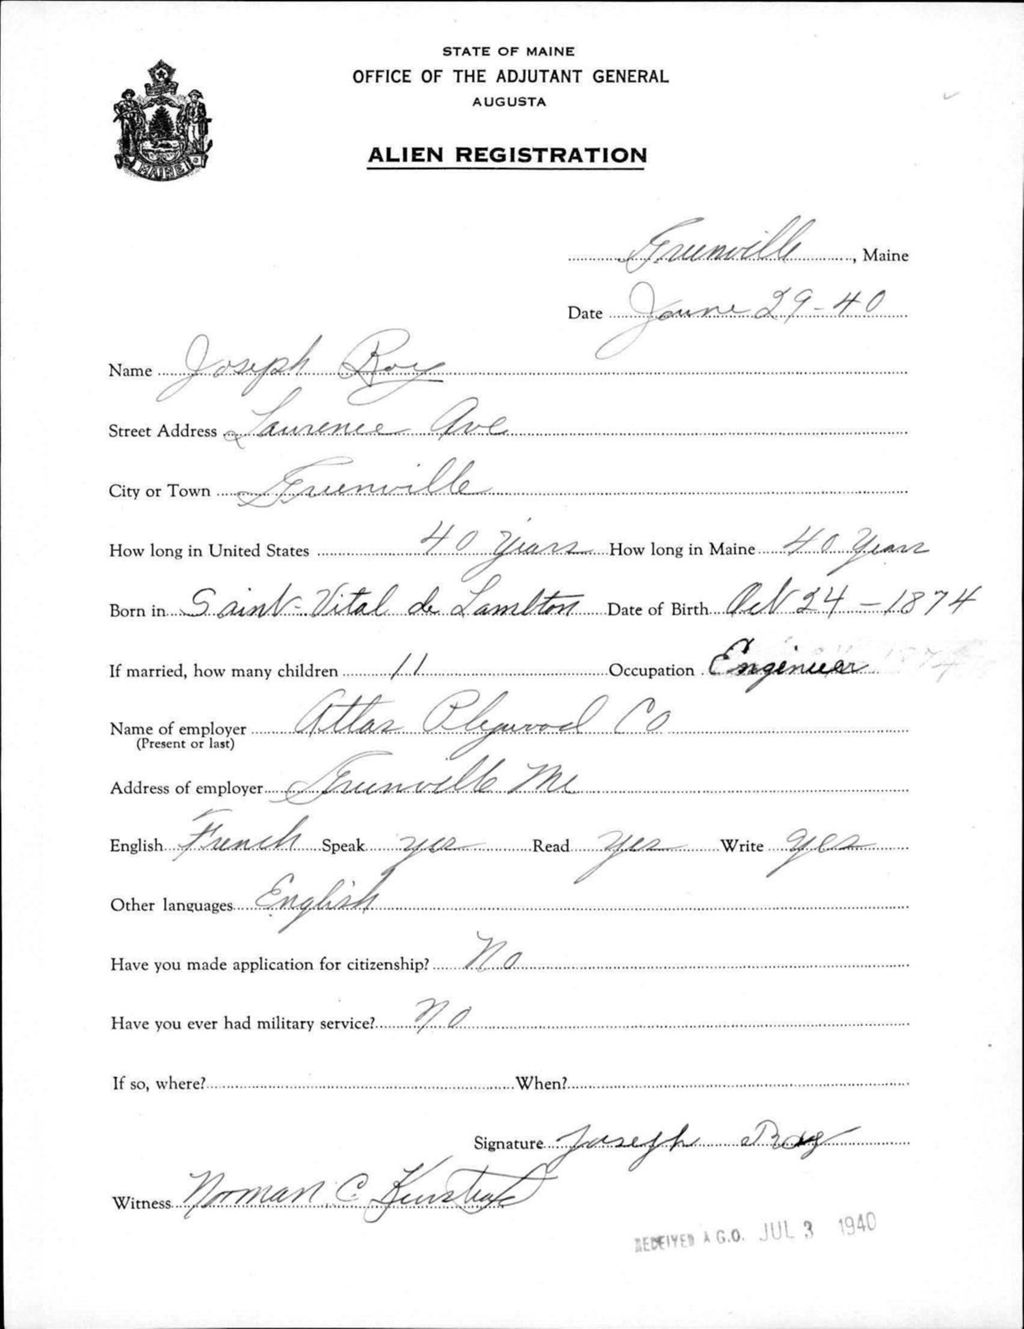 STATE OF MAINE
OFFICE OF THE ADJUTANT GENERAL
AUGUSTA
ALIEN REGISTRATION
MAINE
Greenville, Maine
Date June 29-40
Name Joseph Roy
Street Address Lawrence Ave
City or Town Greenville
How long in United States 40 years How long in Maine 40 Years
Born in Saint-Vital de Lambton Date of Birth Oct 24-1874
If married, how many children 11 Occupation Engineer
Name of employer Atlas Plywood Co
(Present or last)
Address of employer Greenville Me
English French Speak yes Read yes Write yes
Other languages English
Have you made application for citizenship? No
Have you ever had military service? No
If so, where? When?
Signature Joseph Roy
Witness Norman C.
RECEIVED A.G.O. JUL 3 1940